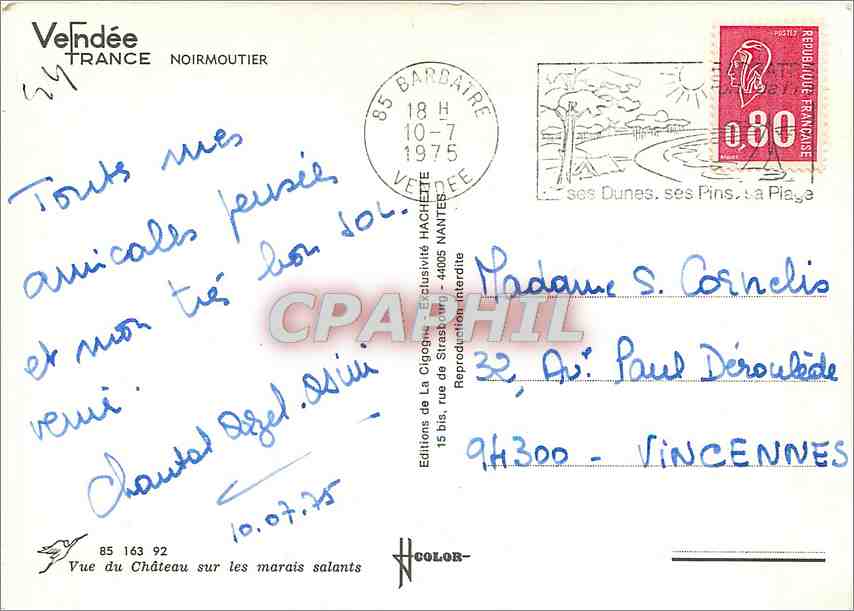 Vendée
FRANCE NOIRMOUTIER
85 BARBATRE
18 H
10-7
1975
VENDEE
ses Dunes. ses Pins. sa Plage
POSTES
REPUBLIQUE FRANÇAISE
0,80
Toutes mes
amicales pensées
et mon très bon sou-
venir.
Chantal
10.07.75
Editions de La Cigogne - Exclusivité HACHETTE
15 bis, rue de Strasbourg - 44005 NANTES
Reproduction interdite
CPAPHIL
Madame S. Cornelis
32, Av. Paul Déroulède
94300 - VINCENNES
85 163 92
Vue du Château sur les marais salants
COLOR